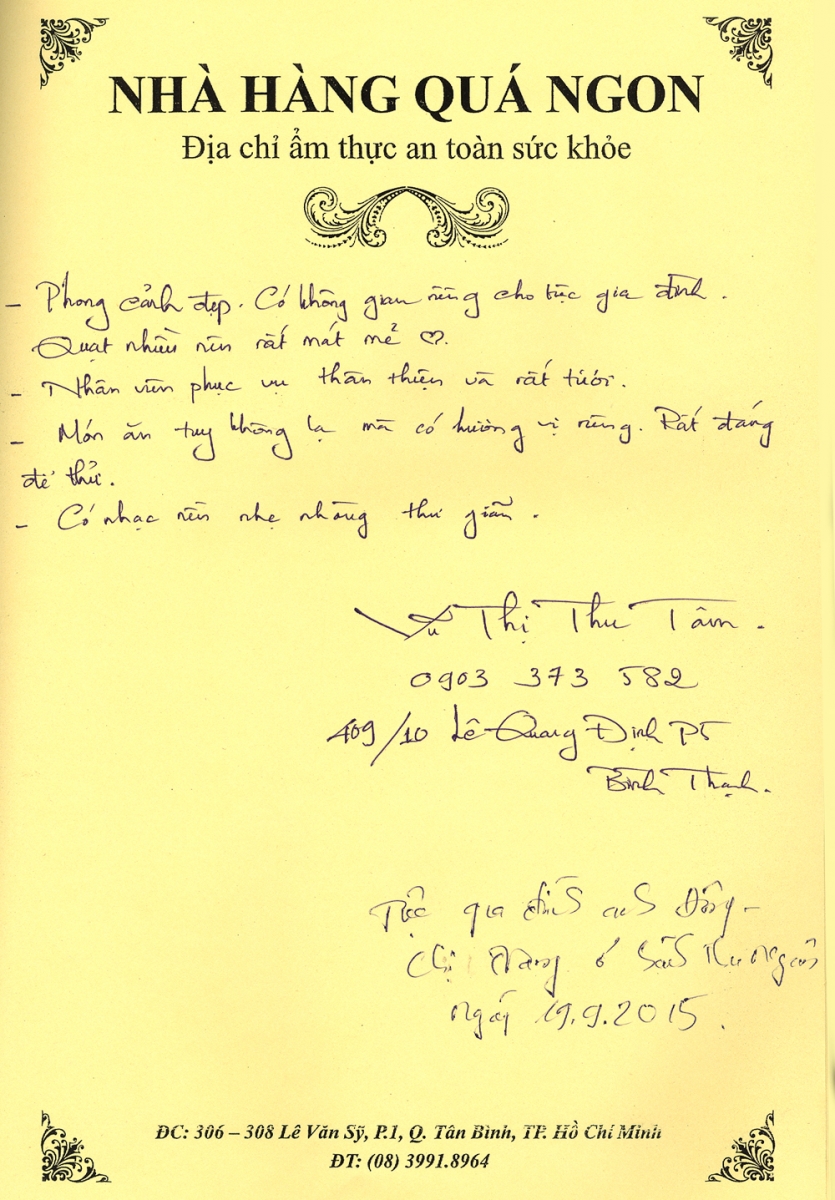 NHÀ HÀNG QUÁ NGON
Địa chỉ ẩm thực an toàn sức khỏe
- Phong cảnh đẹp. Có không gian riêng cho tiệc gia đình.
Quạt nhiều nên rất mát mẻ ♡.
- Nhân viên phục vụ thân thiện và rất tươi.
- Món ăn tuy không lạ mà có hương vị riêng. Rất đáng
để thử.
- Có nhạc nền nhẹ nhàng thư giãn.
Vũ Thị Thu Tâm.
0903 373 582
409/10 Lê Quang Định P5
Bình Thạnh.
Tiệc gia đình anh Đông -
Chị
ngày 19.9.2015.
ĐC: 306 – 308 Lê Văn Sỹ, P.1, Q. Tân Bình, TP. Hồ Chí Minh
ĐT: (08) 3991.8964